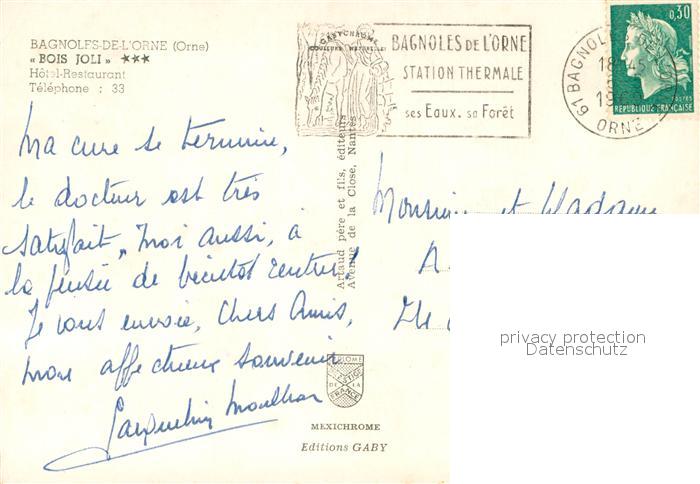 BAGNOLES-DE-L'ORNE (Orne)
« BOIS JOLI » ★★★
Hôtel-Restaurant
Téléphone : 33
GABYCHROME
COULEURS NATURELLES
BAGNOLES DE L'ORNE
STATION THERMALE
ses Eaux. sa Forêt
61 BAGNOLES DE L'ORNE
18H45
ORNE
0,30
POSTES
REPUBLIQUE FRANÇAISE
Ma cure se termine,
le docteur est très
satisfait, moi aussi, à
la pensée de bientôt rentrer!
Je vous envoie, Chers Amis,
mon affectueux souvenir
Jacqueline
Artaud père et fils, éditeurs
Avenue de la Close, Nantes
Monsieur et Madame
DE LA
FRANCE
MEXICHROME
Editions GABY
privacy protection
Datenschutz